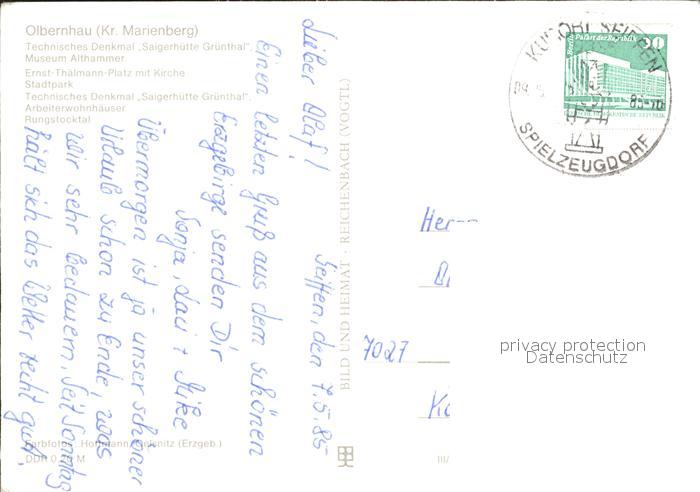 Olbernhau (Kr. Marienberg)
Technisches Denkmal „Saigerhütte Grünthal",
Museum Althammer
Ernst-Thälmann-Platz mit Kirche
Stadtpark
Technisches Denkmal „Saigerhütte Grünthal",
Arbeiterwohnhäuser
Rungstocktal
Seiffen, den 7.5.85
Lieber Olaf!
Einen letzten Gruß aus dem schönen
Erzgebirge senden Dir
Sonja, +
Übermorgen ist ja unser schöner
Urlaub schon zu Ende, was
wir sehr bedauern. Seit Sonntag
hält sich das Wetter recht gut.
Farbfotos: Hoffmann, Oelsnitz (Erzgeb.)
DDR 0, M
BILD UND HEIMAT · REICHENBACH (VOGTL)
III/
KURORT SEIFFEN
SPIELZEUGDORF
09.5.
85-
Berlin Palast der Republik
Her
7027
privacy protection
Datenschutz